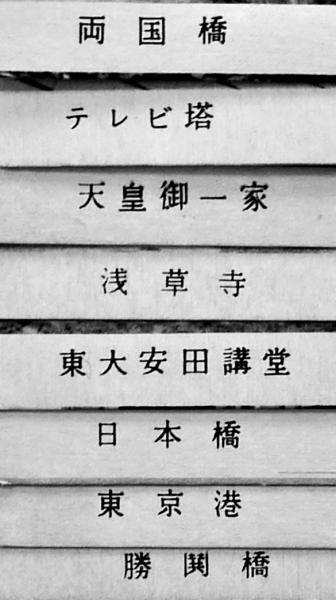 両国橋
テレビ塔
天皇御一家
浅草寺
東大安田講堂
日本橋
東京港
勝鬨橋